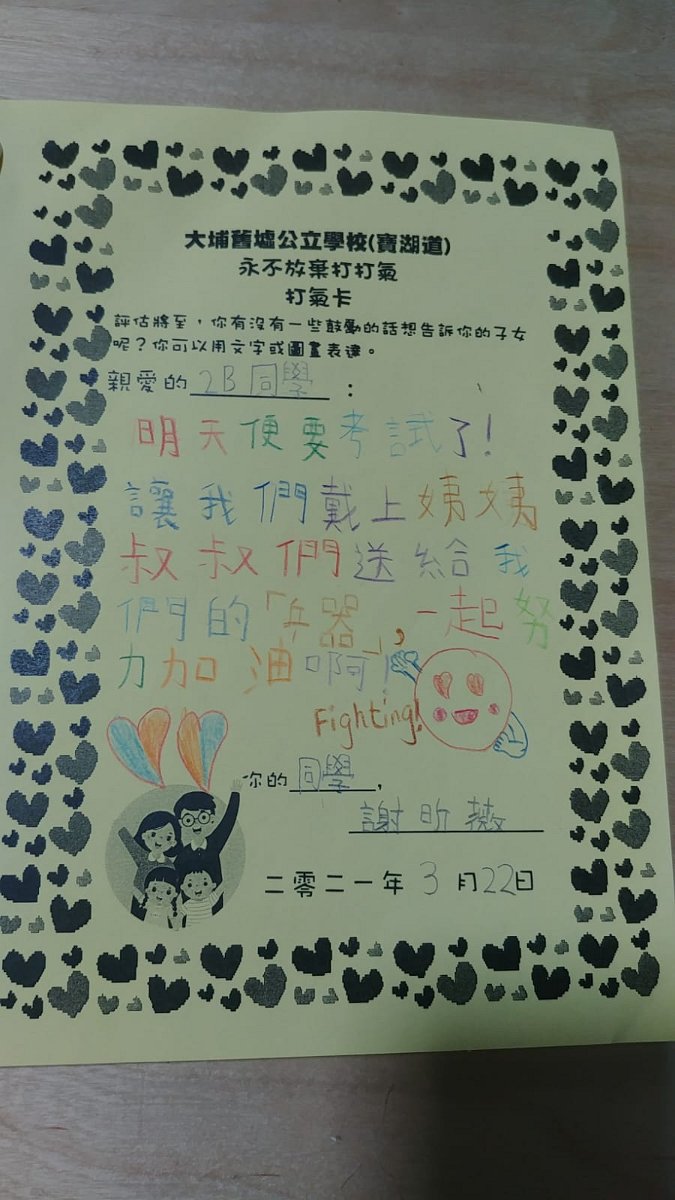 大埔舊墟公立學校(寶湖道)
永不放棄打打氣
打氣卡
評估將至，你有沒有一些鼓勵的話想告訴你的子女
呢？你可以用文字或圖畫表達。
親愛的 2B同學 ：
明天便要考試了!
讓我們戴上姨姨
叔叔們送給我
們的「兵器」，一起努
力加油啊!
Fighting!
你的 同學，
謝昕薇
二零二一年 3 月 22日